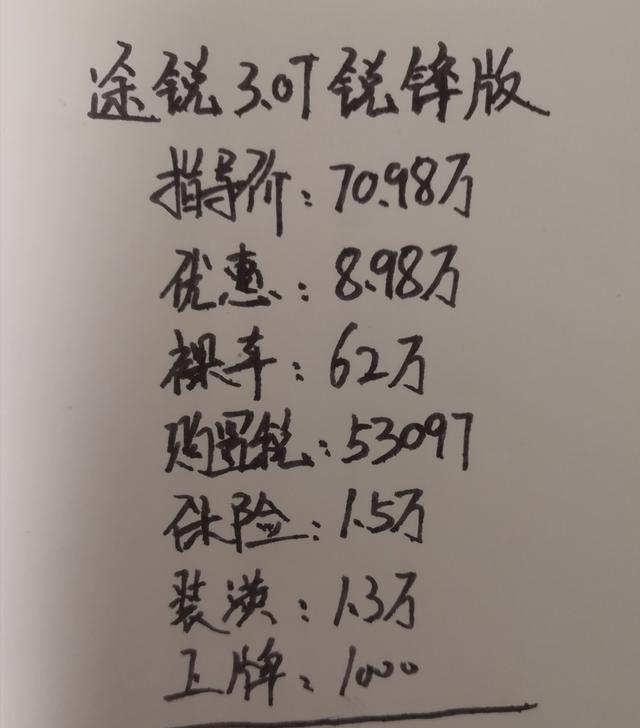 途锐3.0T锐锋版
指导价：70.98万
优惠：8.98万
裸车：62万
购置税：53097
保险：1.5万
装潢：1.3万
上牌：1000